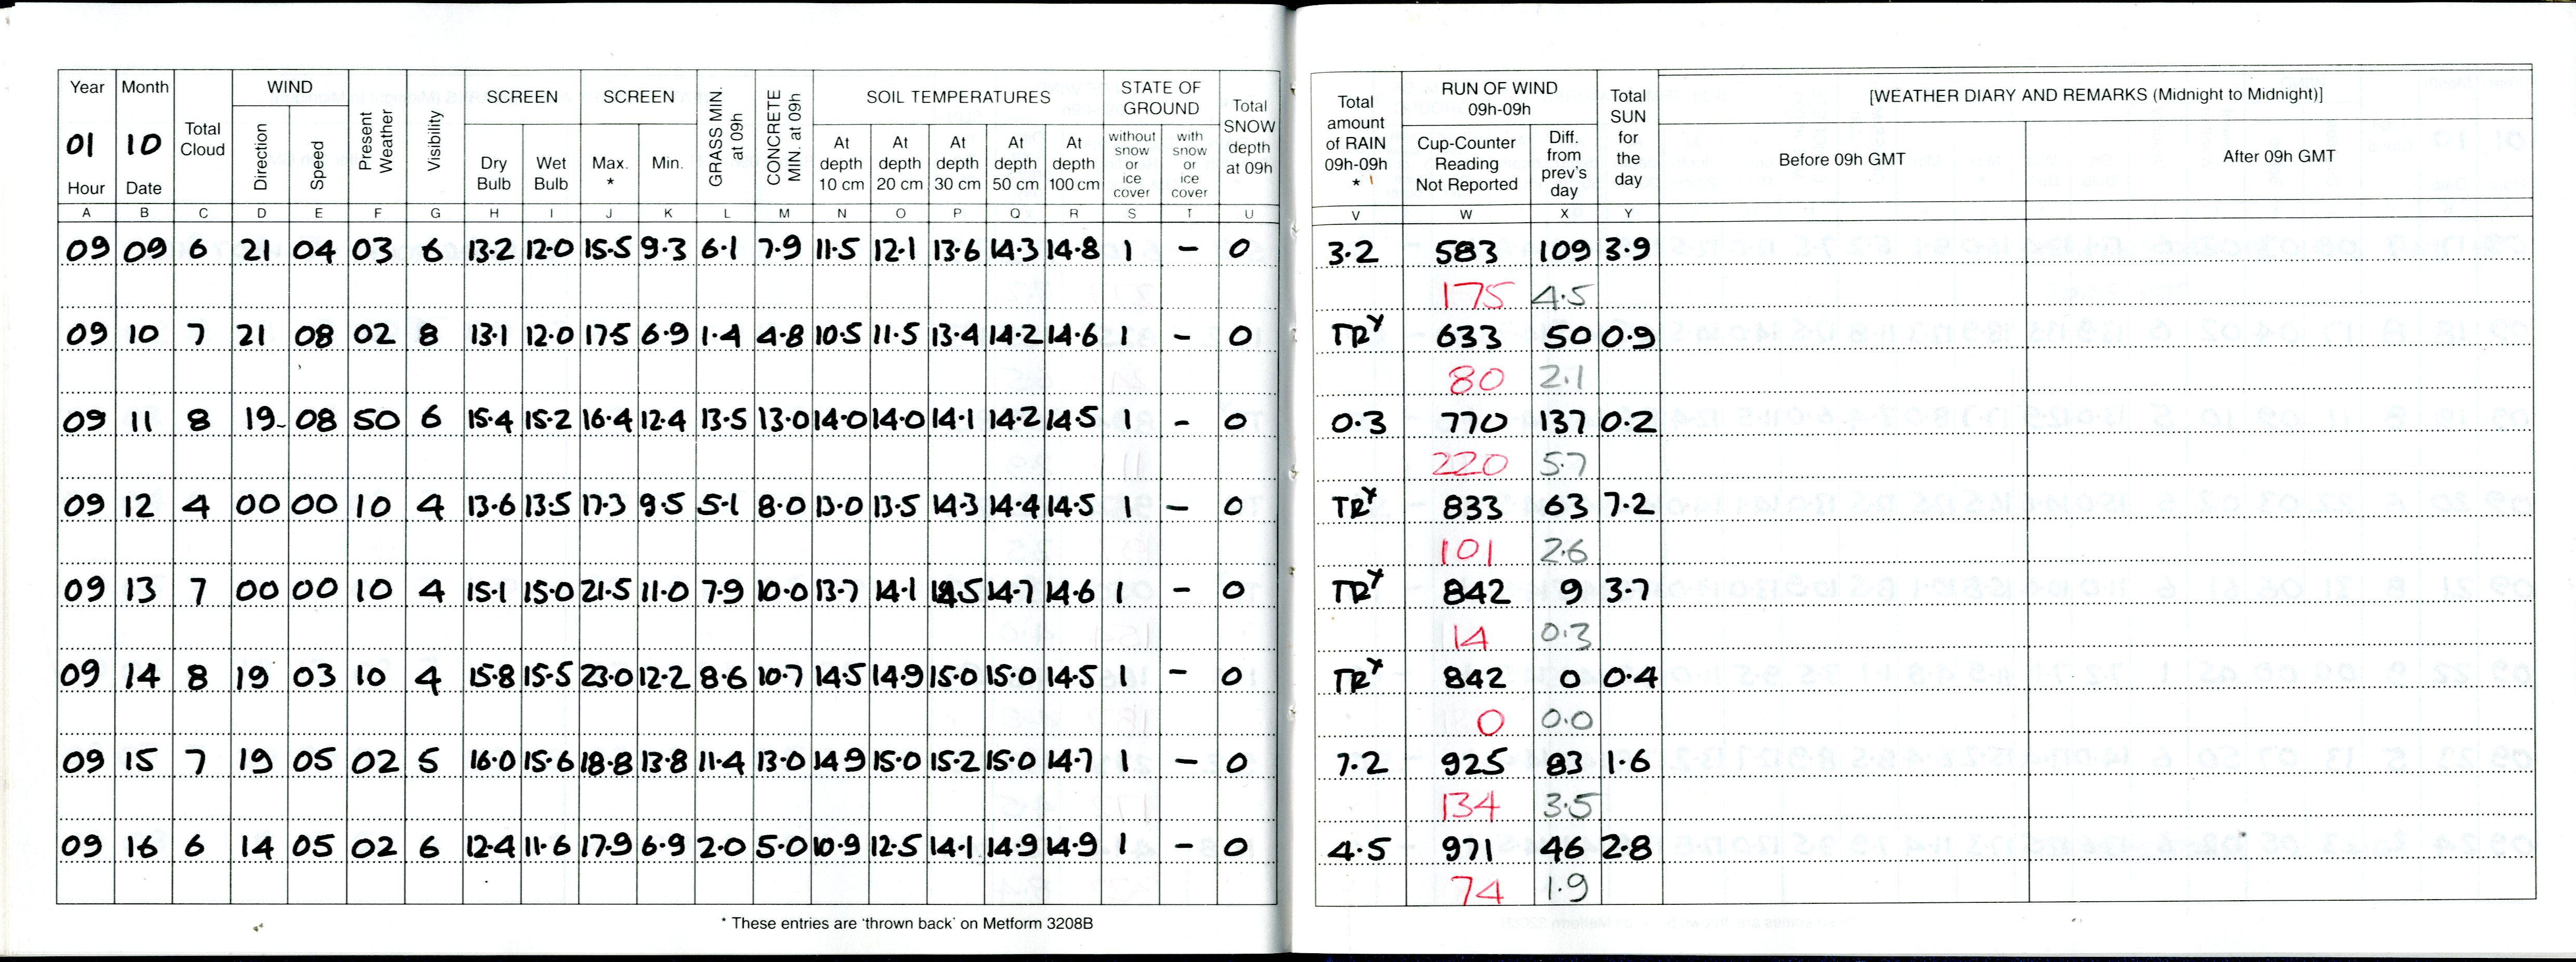 Year Month Total Cloud WIND Present Weather Visibility SCREEN SCREEN GRASS MIN. at 09h CONCRETE MIN. at 09h SOIL TEMPERATURES STATE OF GROUND Total SNOW depth at 09h
01 10 Direction Speed Dry Bulb Wet Bulb Max. * Min. At depth 10 cm At depth 20 cm At depth 30 cm At depth 50 cm At depth 100 cm without snow or ice cover with snow or ice cover
Hour Date
A B C D E F G H I J K L M N O P Q R S T U
09 09 6 21 04 03 6 13.2 12.0 15.5 9.3 6.1 7.9 11.5 12.1 13.6 14.3 14.8 1 - 0
09 10 7 21 08 02 8 13.1 12.0 17.5 6.9 1.4 4.8 10.5 11.5 13.4 14.2 14.6 1 - 0
09 11 8 19 08 50 6 15.4 15.2 16.4 12.4 13.5 13.0 14.0 14.0 14.1 14.2 14.5 1 - 0
09 12 4 00 00 10 4 13.6 13.5 17.3 9.5 5.1 8.0 13.0 13.5 14.3 14.4 14.5 1 - 0
09 13 7 00 00 10 4 15.1 15.0 21.5 11.0 7.9 10.0 13.7 14.1 14.5 14.7 14.6 1 - 0
09 14 8 19 03 10 4 15.8 15.5 23.0 12.2 8.6 10.7 14.5 14.9 15.0 15.0 14.5 1 - 0
09 15 7 19 05 02 5 16.0 15.6 18.8 13.8 11.4 13.0 14.9 15.0 15.2 15.0 14.7 1 - 0
09 16 6 14 05 02 6 12.4 11.6 17.9 6.9 2.0 5.0 10.9 12.5 14.1 14.9 14.9 1 - 0
* These entries are 'thrown back' on Metform 3208B
Total amount of RAIN 09h-09h * RUN OF WIND 09h-09h Total SUN for the day [WEATHER DIARY AND REMARKS (Midnight to Midnight)]
Cup-Counter Reading Not Reported Diff. from prev's day Before 09h GMT After 09h GMT
V W X Y
3.2 583 109 3.9
175 4.5
TRY 633 50 0.9
80 2.1
0.3 770 137 0.2
220 5.7
TRY 833 63 7.2
101 2.6
TRY 842 9 3.7
14 0.3
TRY 842 0 0.4
0 0.0
7.2 925 83 1.6
134 3.5
4.5 971 46 2.8
74 1.9